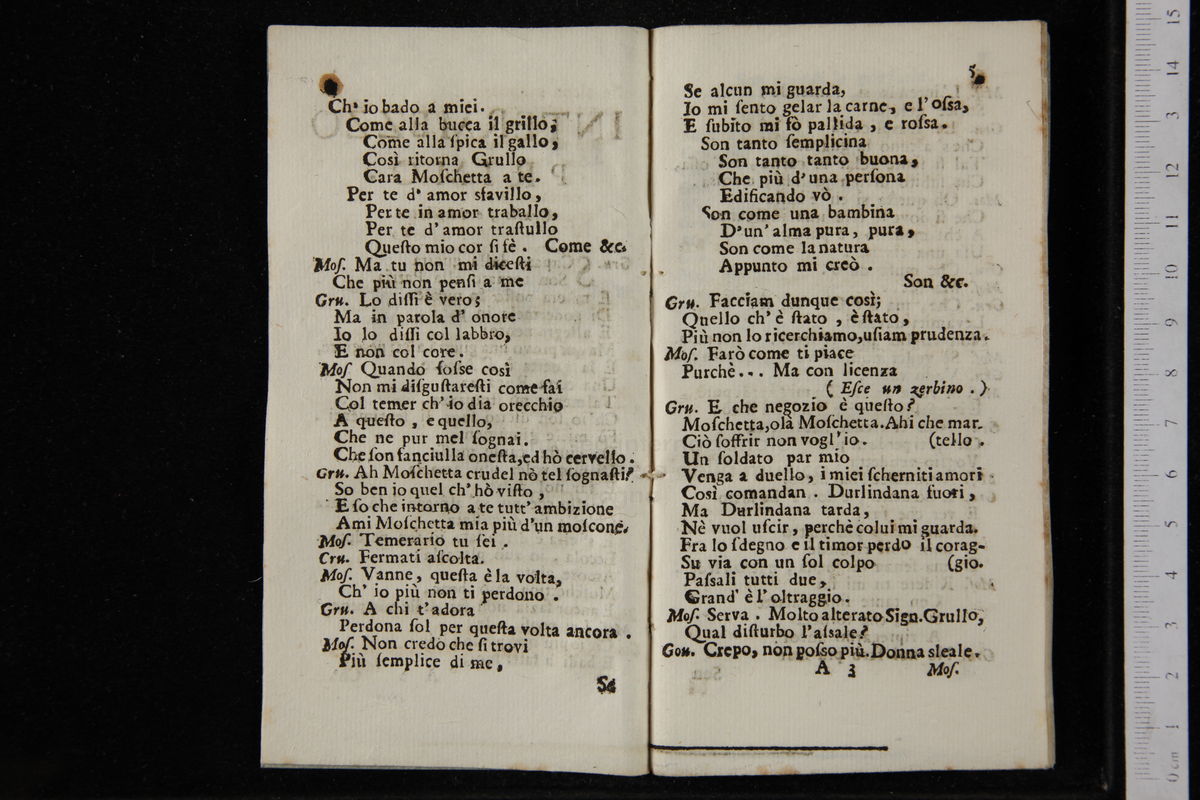 Ch' io bado a miei.
Come alla bucca il grillo;
Come alla ſpica il gallo,
Così ritorna Grullo
Cara Moſchetta a te.
Per te d' amor sfavillo,
Per te in amor traballo,
Per te d' amor traſtullo
Queſto mio cor ſi fè . Come &c.
Moſ. Ma tu non mi diceſti
Che più non penſi a me
Gru. Lo diſſi è vero;
Ma in parola d' onore
Io lo diſſi col labbro,
E non col core.
Moſ Quando foſse così
Non mi diſguſtareſti come fai
Col temer ch' io dia orecchio
A queſto , e quello,
Che ne pur mel ſognai.
Che ſon fanciulla oneſta,ed hò cervello.
Gru. Ah Moſchetta crudel nò tel ſognaſti?
So ben io quel ch' hò viſto ,
E ſo che intorno a te tutt' ambizione
Ami Moſchetta mia più d'un moſcone.
Moſ. Temerario tu ſei .
Cru. Fermati aſcolta.
Moſ. Vanne, queſta è la volta,
Ch' io più non ti perdono .
Gru. A chi t'adora
Perdona ſol per queſta volta ancora .
Moſ. Non credo che ſi trovi
Più ſemplice di me,
Se
5
Se alcun mi guarda,
Io mi ſento gelar la carne, e l'oſsa,
E ſubito mi fò pallida , e roſsa.
Son tanto ſemplicina
Son tanto tanto buona,
Che più d'una perſona
Edificando vò .
Son come una bambina
D'un' alma pura, pura,
Son come la natura
Appunto mi creò .
Son &c.
Gru. Facciam dunque così;
Quello ch' è ſtato , è ſtato,
Più non lo ricerchiamo,uſiam prudenza.
Moſ. Farò come ti piace
Purchè... Ma con licenza
( Eſce un zerbino .)
Gru. E che negozio è queſto?
Moſchetta,olà Moſchetta.Ahi che mar-
Ciò ſoffrir non vogl'io. (tello .
Un ſoldato par mio
Venga a duello, i miei ſcherniti amori
Così comandan . Durlindana fuori,
Ma Durlindana tarda,
Nè vuol uſcir, perchè colui mi guarda.
Fra lo ſdegno e il timor perdo il corag-
Su via con un ſol colpo (gio.
Paſsali tutti due,
Grand' è l'oltraggio.
Moſ. Serva . Molto alterato Sign.Grullo,
Qual diſturbo l'aſsale?
Gou. Crepo, non poſso più.Donna sleale.
A 3 Moſ.